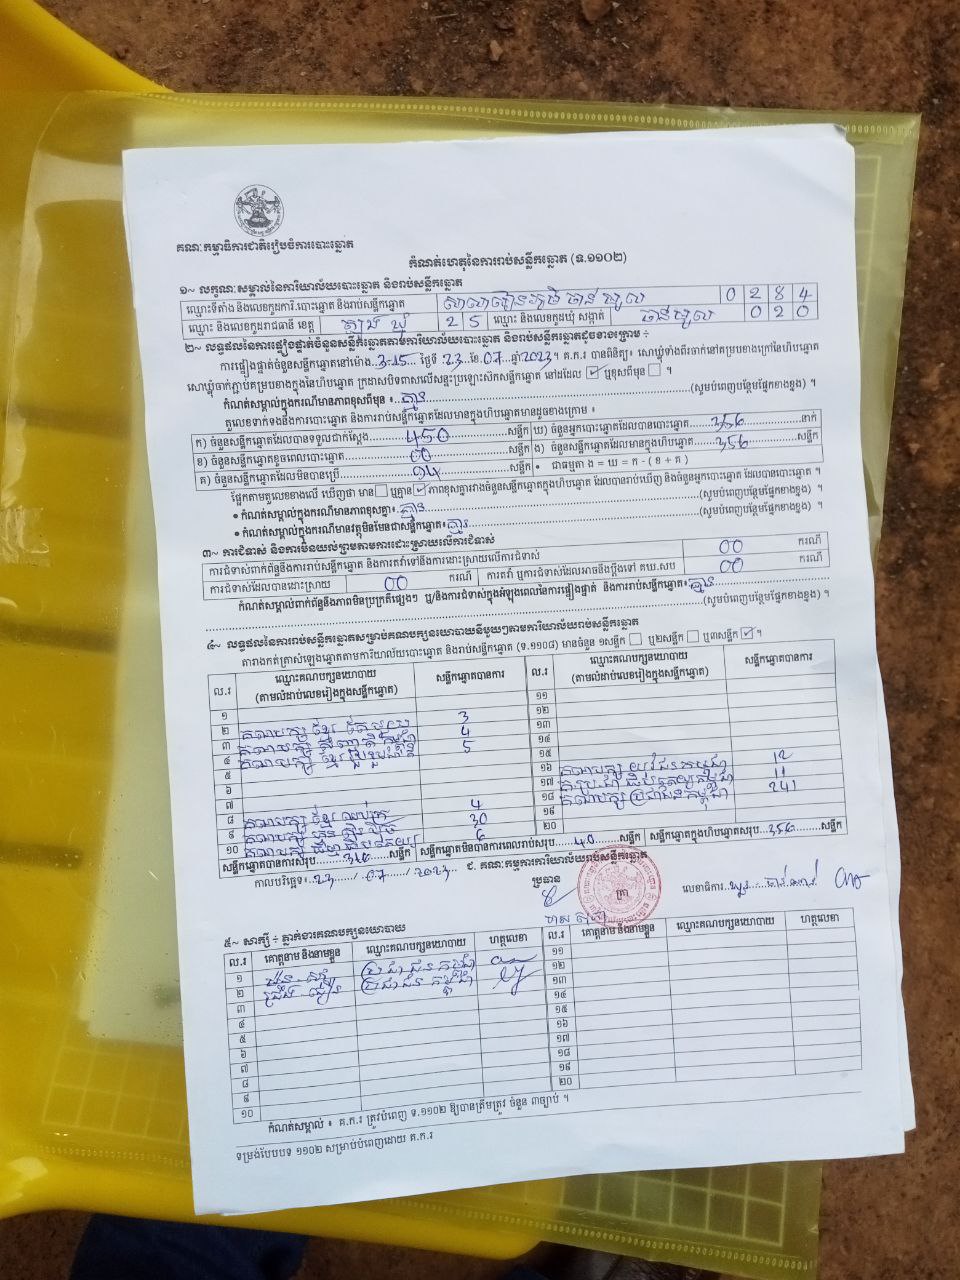 គណៈកម្មាធិការជាតិរៀបចំការបោះឆ្នោត
កំណត់ហេតុនៃការរាប់សន្លឹកឆ្នោត (ទ.១១០២)
១~ លក្ខណៈសម្គាល់នៃការិយាល័យបោះឆ្នោត និងរាប់សន្លឹកឆ្នោត
ឈ្មោះទីតាំង និងលេខកូដការិ.បោះឆ្នោត និងរាប់សន្លឹកឆ្នោត 0 2 8 4
ឈ្មោះ និងលេខកូដរាជធានី ខេត្ត ត្បូងឃ្មុំ 2 5 ឈ្មោះ និងលេខកូដឃុំ សង្កាត់ 0 2 0
២~ លទ្ធផលនៃការផ្ទៀងផ្ទាត់ចំនួនសន្លឹកឆ្នោតតាមការិយាល័យបោះឆ្នោត និងរាប់សន្លឹកឆ្នោតដូចខាងក្រោម ÷
ការផ្ទៀងផ្ទាត់ចំនួនសន្លឹកឆ្នោតនៅម៉ោង..3:15... ថ្ងៃទី 23.ខែ.07.ឆ្នាំ2023។ គ.ក.រ បានពិនិត្យ៖ សោឃ្លុំទាំងពីរចាក់នៅគម្របខាងក្រៅនៃហិបឆ្នោត
សោឃ្លុំចាក់ភ្ជាប់គម្របខាងក្នុងនៃហិបឆ្នោត ក្រដាសបិទពាសលើសន្ទះប្រឡោះសិកសន្លឹកឆ្នោត នៅដដែល ☑ ឬខុសពីមុន ☐ ។
កំណត់សម្គាល់ក្នុងករណីមានភាពខុសពីមុន ៖..គ្មាន......(សូមបំពេញបន្ថែមផ្នែកខាងខ្នង) ។
តួលេខទាក់ទងនឹងការបោះឆ្នោត និងការរាប់សន្លឹកឆ្នោតដែលមានក្នុងហិបឆ្នោតមានដូចខាងក្រោម ៖
ក) ចំនួនសន្លឹកឆ្នោតដែលបានទទួលជាក់ស្តែង.....450.....សន្លឹក ឃ) ចំនួនអ្នកបោះឆ្នោតដែលបានបោះឆ្នោត.....356.....នាក់
ខ) ចំនួនសន្លឹកឆ្នោតខូចពេលបោះឆ្នោត.....00.....សន្លឹក ង) ចំនួនសន្លឹកឆ្នោតដែលមានក្នុងហិបឆ្នោត.....356.....សន្លឹក
គ) ចំនួនសន្លឹកឆ្នោតដែលមិនបានប្រើ.....94.....សន្លឹក • ជាធម្មតា ង = ឃ = ក - ( ខ + គ )
ផ្អែកតាមតួលេខខាងលើ ឃើញថា មាន ☐ ឬគ្មាន ☑ ភាពខុសគ្នារវាងចំនួនសន្លឹកឆ្នោតក្នុងហិបឆ្នោត ដែលបានរាប់ឃើញ និងចំនួនអ្នកបោះឆ្នោត ដែលបានបោះឆ្នោត ។
• កំណត់សម្គាល់ក្នុងករណីមានភាពខុសគ្នា៖..គ្មាន......(សូមបំពេញបន្ថែមផ្នែកខាងខ្នង) ។
• កំណត់សម្គាល់ក្នុងករណីមានវត្ថុមិនមែនជាសន្លឹកឆ្នោត៖..គ្មាន......(សូមបំពេញបន្ថែមផ្នែកខាងខ្នង) ។
៣~ ការជំទាស់ និងការមិនយល់ព្រមតាមការដោះស្រាយលើការជំទាស់
ការជំទាស់ពាក់ព័ន្ធនឹងការរាប់សន្លឹកឆ្នោត និងការតវ៉ាទៅនឹងការដោះស្រាយលើការជំទាស់ 00 ករណី
ការជំទាស់ដែលបានដោះស្រាយ 00 ករណី ការតវ៉ា ឬការជំទាស់ដែលអាចនឹងប្តឹងទៅ គឃ.សប 00 ករណី
កំណត់សម្គាល់ពាក់ព័ន្ធនឹងភាពមិនប្រក្រតីផ្សេងៗ ឬ/និងការជំទាស់ក្នុងអំឡុងពេលនៃការផ្ទៀងផ្ទាត់ និងការរាប់សន្លឹកឆ្នោត៖..គ្មាន......
......(សូមបំពេញបន្ថែមផ្នែកខាងខ្នង) ។
៤~ លទ្ធផលនៃការរាប់សន្លឹកឆ្នោតសម្រាប់គណបក្សនយោបាយនីមួយៗតាមការិយាល័យរាប់សន្លឹកឆ្នោត
តារាងកត់ត្រាសំឡេងឆ្នោតតាមការិយាល័យបោះឆ្នោត និងរាប់សន្លឹកឆ្នោត (ទ.១១០៨) មានចំនួន ១សន្លឹក ☐ ឬ២សន្លឹក ☐ ឬ៣សន្លឹក ☑ ។
ល.រ ឈ្មោះគណបក្សនយោបាយ (តាមលំដាប់លេខរៀងក្នុងសន្លឹកឆ្នោត) សន្លឹកឆ្នោតបានការ ល.រ ឈ្មោះគណបក្សនយោបាយ (តាមលំដាប់លេខរៀងក្នុងសន្លឹកឆ្នោត) សន្លឹកឆ្នោតបានការ
១ ១១
២ គណបក្ស ខ្មែរ តែមួយ 3 ១២
៣ គណបក្ស 4 ១៣
៤ គណបក្ស ខ្មែរ រួបរួមជាតិ 5 ១៤
៥ ១៥
៦ ១៦ គណបក្ស យុវជនកម្ពុជា 12
៧ ១៧ 11
៨ គណបក្ស ខ្មែរ ឈប់ក្រ 4 ១៨ គណបក្ស ប្រជាជនកម្ពុជា 241
៩ គណបក្ស ហ្វ៊ុនស៊ិនប៉ិច 30 ១៩
១០ គណបក្ស 6 ២០
សន្លឹកឆ្នោតបានការសរុប...316...សន្លឹក សន្លឹកឆ្នោតមិនបានការពេលរាប់សរុប...40...សន្លឹក សន្លឹកឆ្នោតក្នុងហិបឆ្នោតសរុប...356...សន្លឹក
កាលបរិច្ឆេទ៖...23.../...07.../...2023... ជ. គណៈកម្មការការិយាល័យរាប់សន្លឹកឆ្នោត
ប្រធាន លេខាធិការ
៥~ សាក្សី ÷ ភ្នាក់ងារគណបក្សនយោបាយ
ល.រ គោត្តនាម និងនាមខ្លួន ឈ្មោះគណបក្សនយោបាយ ហត្ថលេខា ល.រ គោត្តនាម និងនាមខ្លួន ឈ្មោះគណបក្សនយោបាយ ហត្ថលេខា
១ ប្រជាជនកម្ពុជា ១១
២ ប្រជាជន កម្ពុជា ១២
៣ ១៣
៤ ១៤
៥ ១៥
៦ ១៦
៧ ១៧
៨ ១៨
៩ ១៩
១០ ២០
កំណត់សម្គាល់ ៖ គ.ក.រ ត្រូវបំពេញ ទ.១១០២ ឱ្យបានត្រឹមត្រូវ ចំនួន ៣ច្បាប់ ។
ទម្រង់បែបបទ ១១០២ សម្រាប់បំពេញដោយ គ.ក.រ